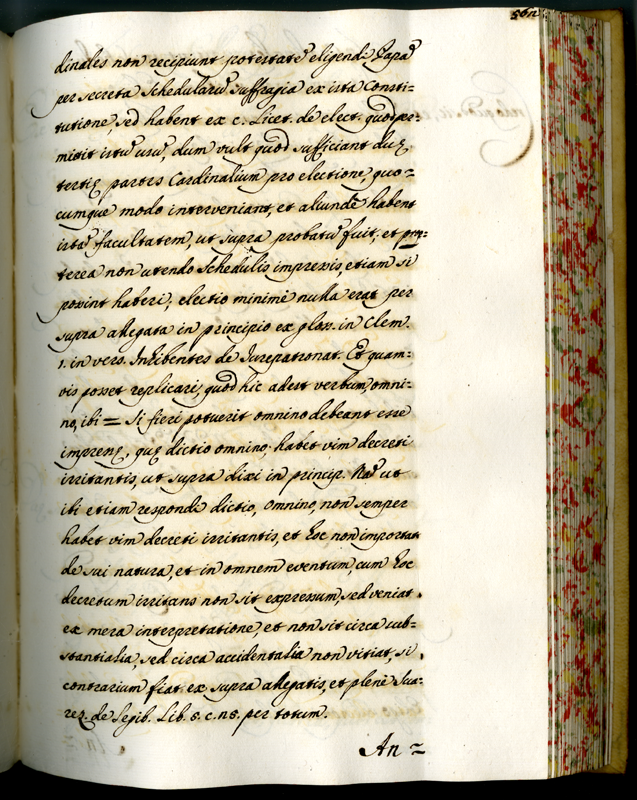 562
dinales non recipiunt potestatē eligendi Papā
per secreta Schedularū suffragia ex ista Consti=
tutione, sed habent ex c. Licet. de elect. quod per=
mittit istū usū, dum vult quod sufficiant duę
tertię partes Cardinalium pro electione, quo=
cumque modo interveniant, et aliunde habent
istā facultatem, ut supra probatū fuit, et prę=
terea non utendo Schedulis impressis, etiam si
possint haberi; electio minimè nulla erat per
supra allegata in principio ex glos. in Clem.
1. in vers. Inhibentes de Iurepatronat. Et quam=
vis posset replicari, quod hic adest verbum, omni=
no, ibi = Si fieri potuerit omnino debeant esse
impresę, quę dictio omnino, habet vim decreti
irritantis, ut supra dixi in princip. Nā ut
ibi etiam respondi dictio, Omnino, non semper
habet vim decreti irritantis, et hoc non importat
de sui natura, et in omnem eventum, cum hoc
decretum irritans non sit expressum, sed veniat
ex mera interpretatione, et non sit circa sub=
stantialia, sed circa accidentalia non vitiat, si
contrarium fiat ex supra allegatis, et plenè Sua=
rez. de Legib. Lib. 5. c. 28. per totum.
An =